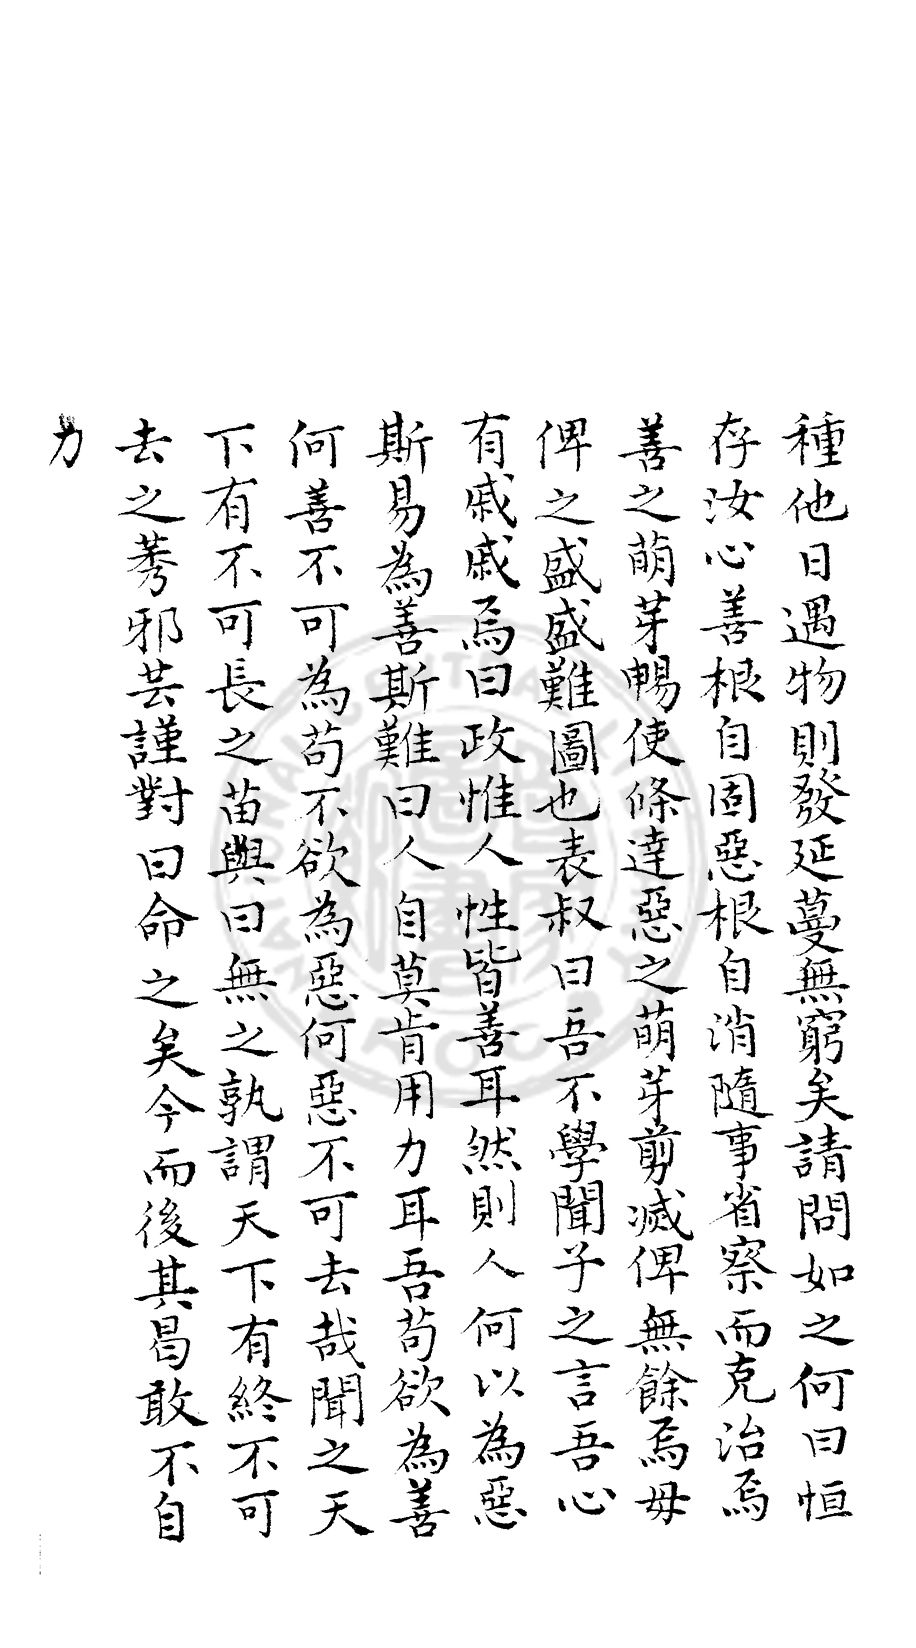 種他日遇物則發延蔓無窮矣請問如之何曰恒
存汝心善根自固惡根自消隨事省察而克治焉
善之萌芽暢使條達惡之萌芽剪滅俾無餘焉毋
俾之盛盛難圖也表叔曰吾不學聞子之言吾心
有戚戚焉曰政惟人性皆善耳然則人何以為惡
斯易為善斯難曰人自莫肯用力耳吾苟欲為善
何善不可為苟不欲為惡何惡不可去哉聞之天
下有不可長之苗與曰無之孰謂天下有終不可
去之莠邪芸謹對曰命之矣今而後其曷敢不自
力